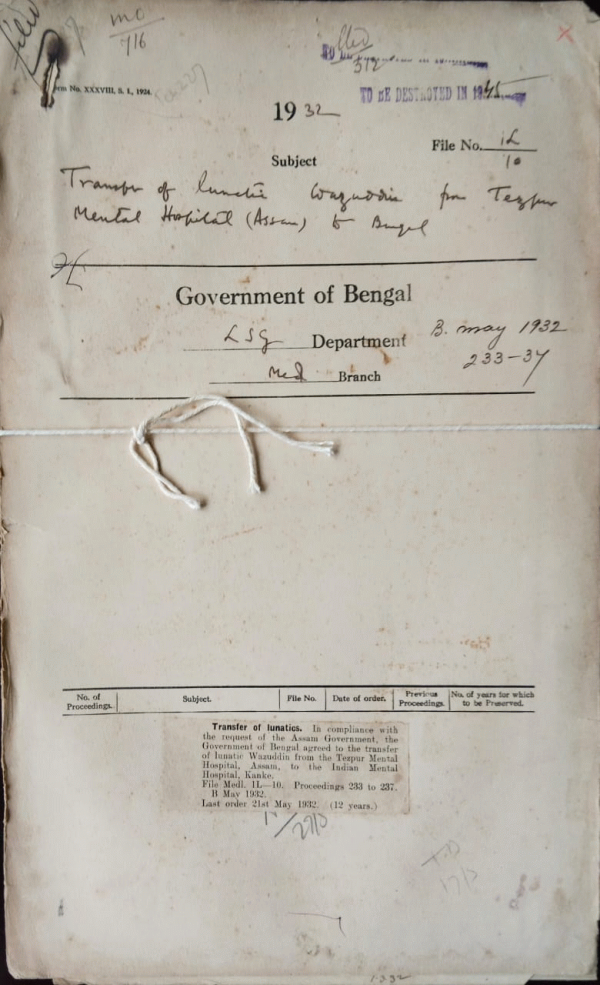 filed
mc
716
filed
372
Form No. XXXVIII, S. 1, 1924.
TO BE DESTROYED IN 1945
1932
File No. 1L
10
Subject
Transfer of lunatic Wazuddin from Tezpur
Mental Hospital (Assam) to Bengal
Government of Bengal
LSG Department
B. May 1932
233-37
Med Branch
No. of Proceedings.
Subject.
File No.
Date of order.
Previous Proceedings.
No. of years for which to be Preserved.
Transfer of lunatics. In compliance with
the request of the Assam Government, the
Government of Bengal agreed to the transfer
of lunatic Wazuddin from the Tezpur Mental
Hospital, Assam, to the Indian Mental
Hospital, Kanke.
File Medl. 1L—10. Proceedings 233 to 237.
B May 1932.
Last order 21st May 1932. (12 years.)